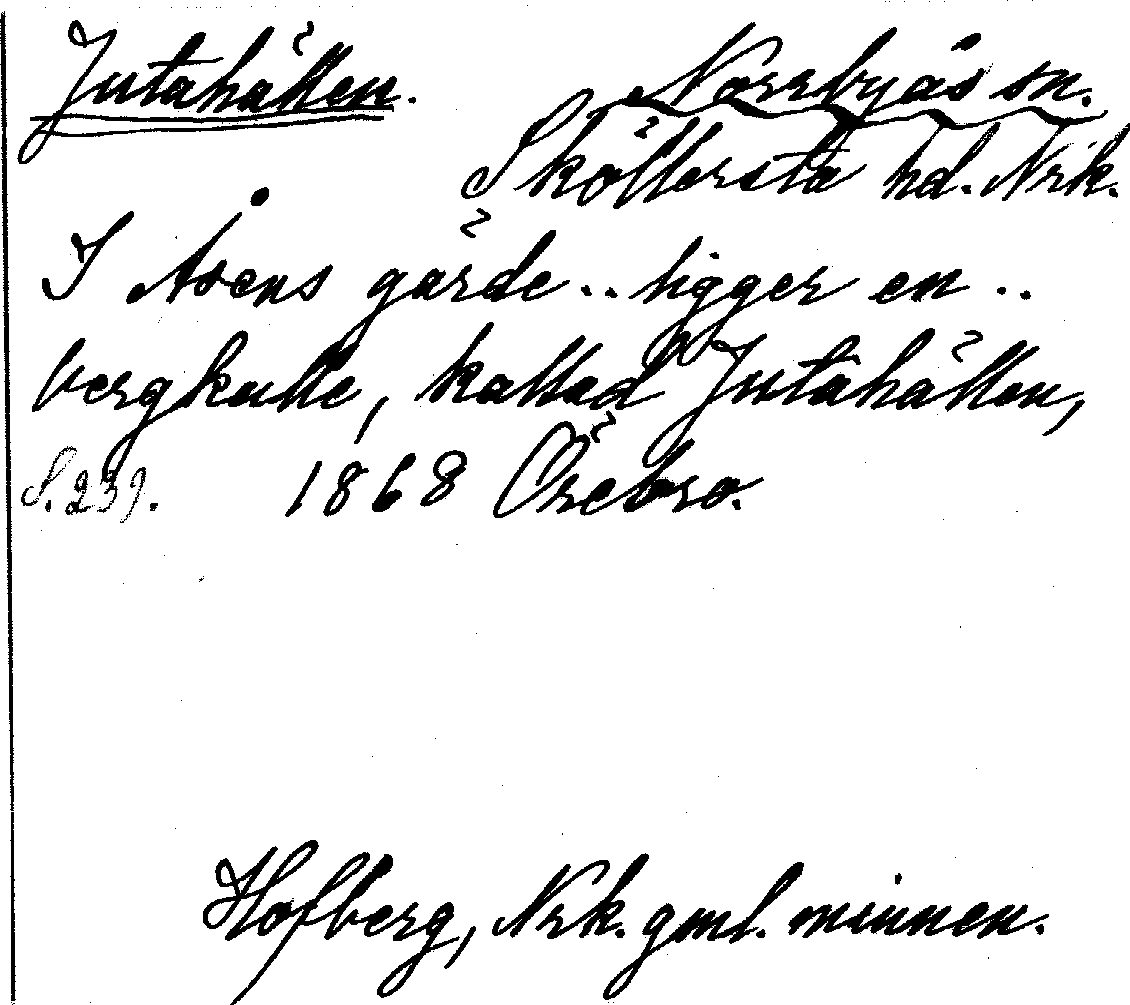 Jutahällen. Norrbyås sn.
Sköllersta hd. Nrk.
I Åsens gärde .. ligger en ..
bergkulle, kallad Jutahällen,
S. 239. 1868 Örebro.
Hofberg, Nrk. gml. minnen.